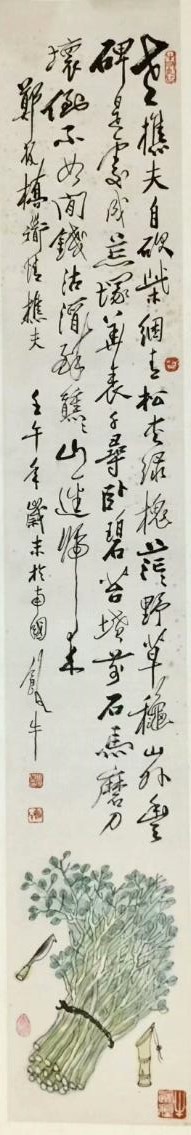 老樵夫自砍柴綑青松夾綠槐茫茫野草穐山外豐
碑是處成荒塚華表千尋卧碧苔墳前石馬磨刀
壞倒不如閒錢沽酒醉醺醺山逕歸來
鄭板橋道情樵夫
壬午年歲末於南國 牛